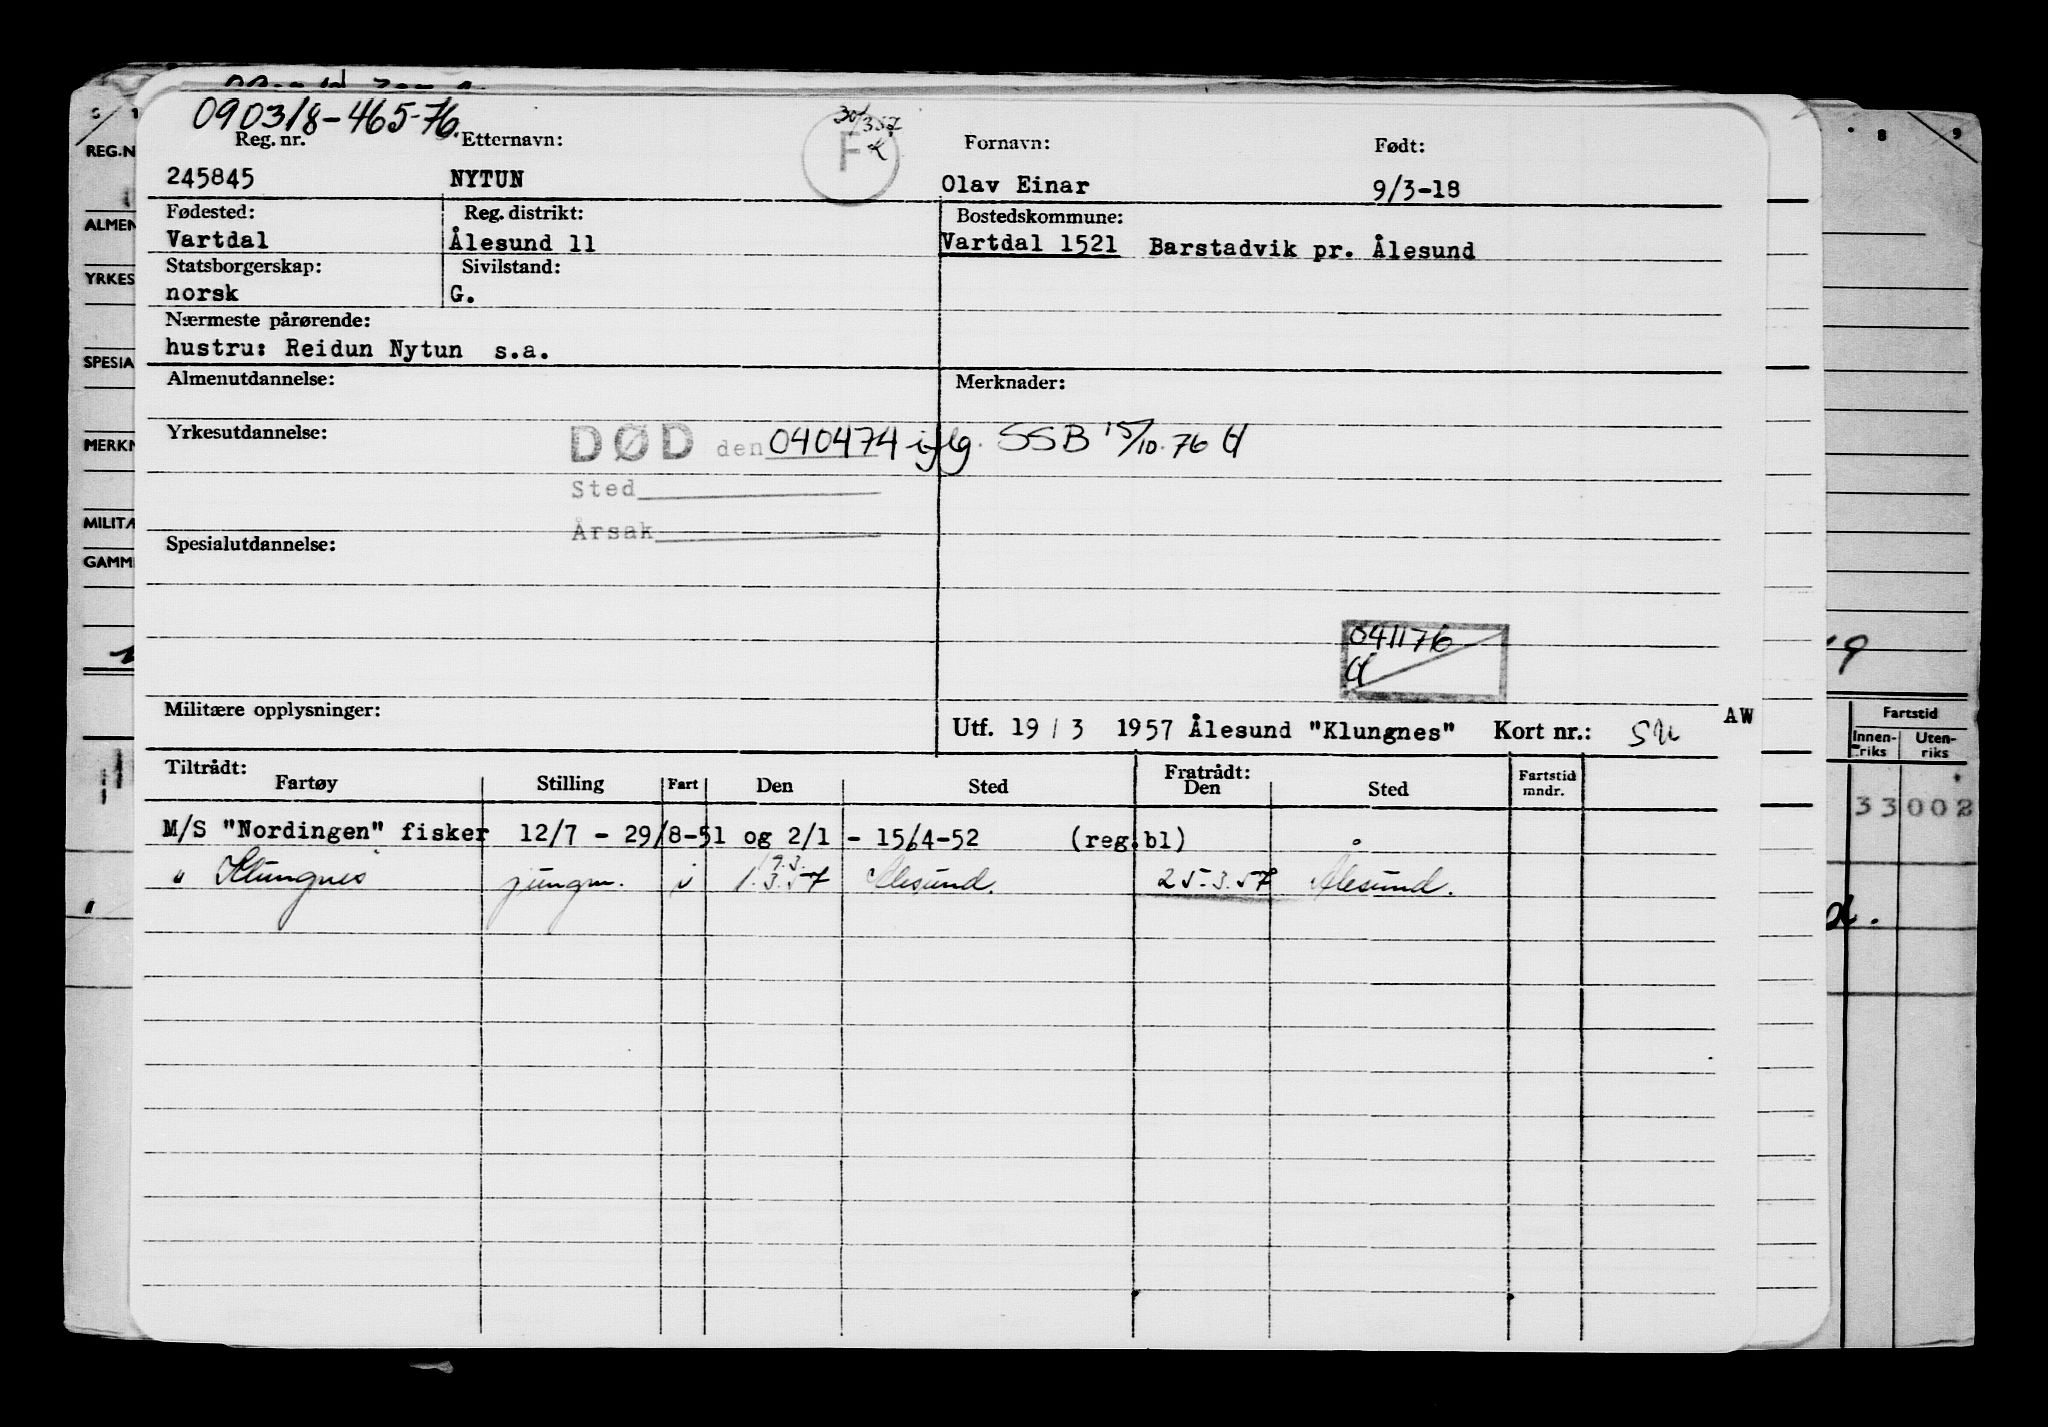 090318-465-76.
Reg. nr. Etternavn: Fornavn: Født:
F
245845 NYTUN Olav Einar 9/3-18
Fødested: Reg. distrikt: Bostedskommune:
Vartdal Ålesund 11 Vartdal 1521 Barstadvik pr. Ålesund
Statsborgerskap: Sivilstand:
norsk G.
Nærmeste pårørende:
hustru: Reidun Nytun s.a.
Almenutdannelse: Merknader:
Yrkesutdannelse: DØD den 040474 iflg. SSB 15/10.76
Sted
Årsak
Spesialutdannelse:
041176
Militære opplysninger: Utf. 19 / 3 1957 Ålesund "Klungnes" Kort nr.: AW
Tiltrådt: Fratrådt: Fartstid
Fartøy Stilling Fart Den Sted Den Sted mndr.
M/S "Nordingen" fisker 12/7 - 29/8-51 og 2/1 - 15/4-52 (reg.bl)
" Klungnes jungm. 19.3.57 Ålesund. 25.3.57 Ålesund.
REG.N
ALMEN
YRKES
SPESIA
MERKN
MILITÆ
GAMM
8 9
Fartstid
Innen-riks Uten-riks
33 002